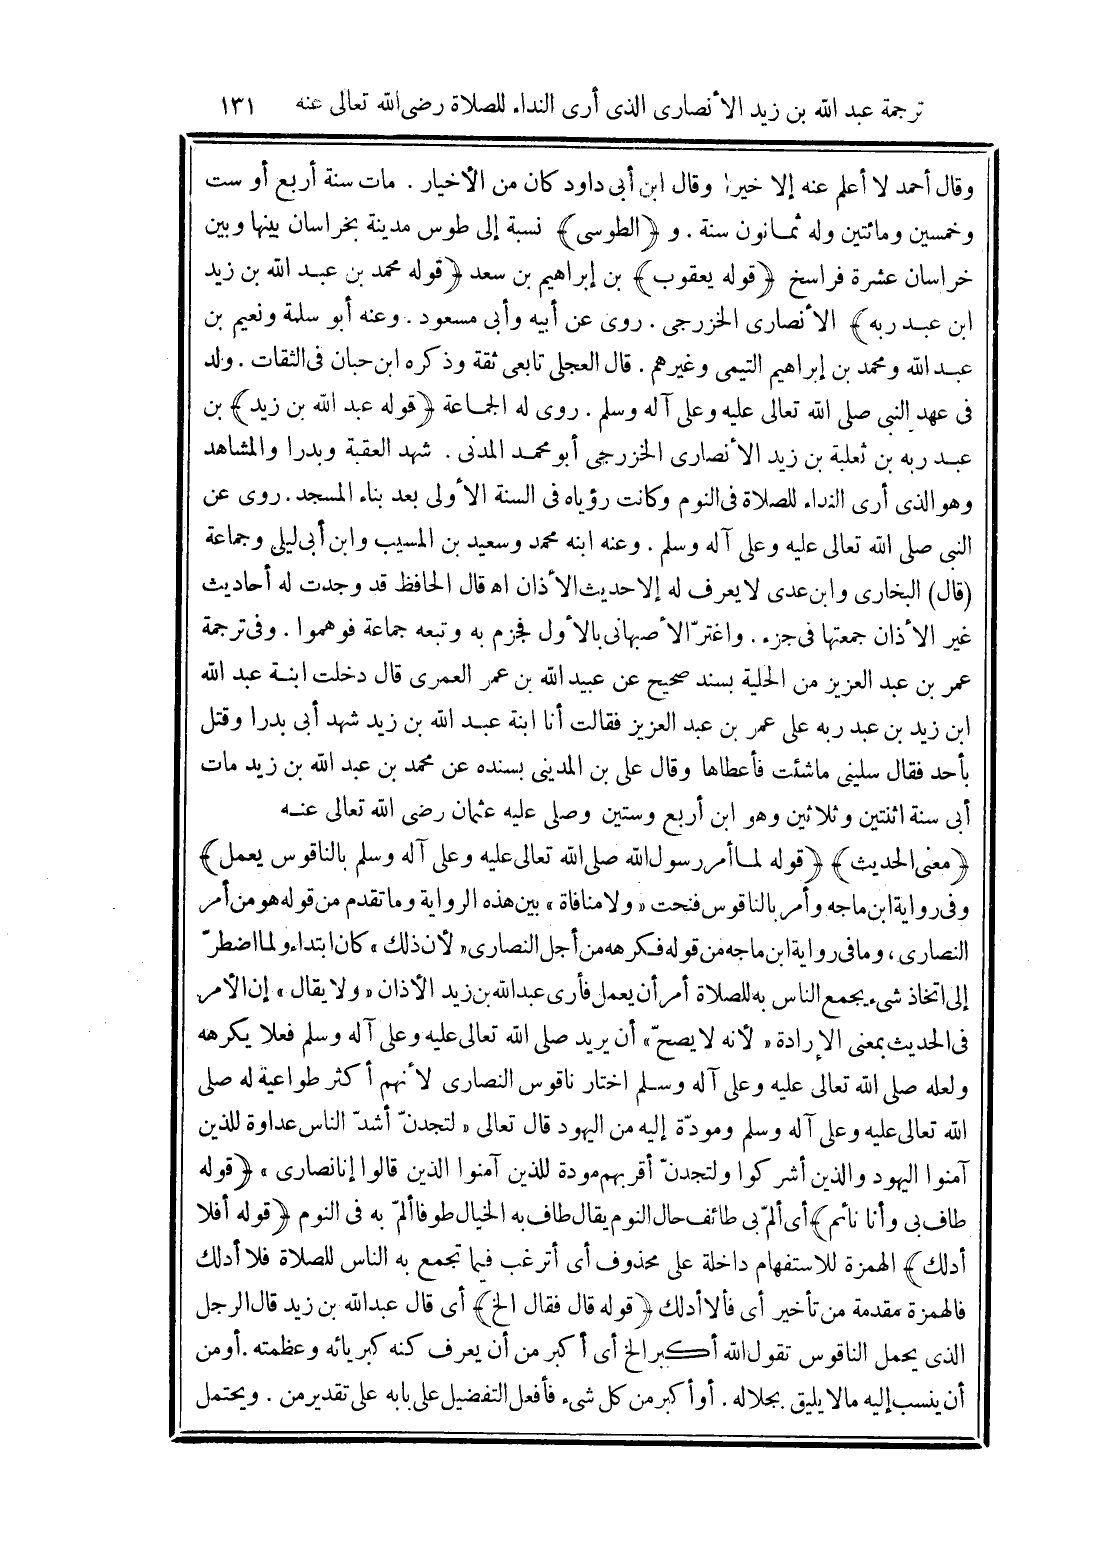 ترجمة عبد الله بن زيد الأنصارى الذى أرى النداء للصلاة رضى الله تعالى عنه ١٣١
وقال أحمد لا أعلم عنه إلا خيرا وقال ابن أبى داود كان من الأخيار . مات سنة أربع أو ست
وخمسين ومائتين وله ثمـانون سنة . و ﴿الطوسى﴾ نسبة إلى طوس مدينة بخراسان بينها وبين
خراسان عشرة فراسخ ﴿قوله يعقوب﴾ بن إبراهيم بن سعد ﴿قوله محمد بن عبـد الله بن زيد
ابن عبـد ربه﴾ الأنصارى الخزرجى . روى عن أبيه وأبى مسعود . وعنه أبو سلمة ونعيم بن
عبـد الله ومحمد بن إبراهيم التيمى وغيرهم . قال العجلى تابعى ثقة وذكره ابن حبان فى الثقات . ولد
فى عهد النبى صلى الله تعالى عليه وعلى آله وسلم . روى له الجمـاعة ﴿قوله عبد الله بن زيد﴾ بن
عبـد ربه بن ثعلبة بن زيد الأنصارى الخزرجى أبو محمـد المدنى . شهد العقبة وبدرا والمشاهد
وهو الذى أرى النداء للصلاة فى النوم وكانت رؤياه فى السنة الأولى بعد بناء المسجد . روى عن
النبى صلى الله تعالى عليه وعلى آله وسلم . وعنه ابنه محمد وسعيد بن المسيب وابن أبى ليلى وجماعة
(قال) البخارى وابن عدى لا يعرف له إلا حديث الأذان اه قال الحافظ قد وجدت له أحاديث
غير الأذان جمعتها فى جزء . واغترّ الأصبهانى بالأول فجزم به وتبعه جماعة فوهموا . وفى ترجمة
عمر بن عبد العزيز من الحلية بسند صحيح عن عبيد الله بن عمر العمرى قال دخلت ابنـة عبد الله
ابن زيد بن عبد ربه على عمر بن عبد العزيز فقالت أنا ابنة عبـد الله بن زيد شهد أبى بدرا وقتل
بأحد فقال سلينى ماشئت فأعطاها وقال على بن المدينى بسنده عن محمد بن عبد الله بن زيد مات
أبى سنة اثنتين وثلاثين وهو ابن أربع وستين وصلى عليه عثمان رضى الله تعالى عنـه
﴿معنى الحديث﴾ ﴿قوله لمـا أمر رسول الله صلى الله تعالى عليه وعلى آله وسلم بالناقوس يعمل﴾
وفى رواية ابن ماجه وأمر بالناقوس فنحت «ولا منافاة» بين هذه الرواية وما تقدم من قوله هو من أمر
النصارى ، وما فى رواية ابن ماجه من قوله فكرهه من أجل النصارى «لأن ذلك» كان ابتداء ولما اضطرّ
إلى اتخاذ شىء يجمع الناس به للصلاة أمر أن يعمل فأرى عبد الله بن زيد الأذان «ولا يقال» إن الأمر
فى الحديث بمعنى الإرادة «لأنه لا يصحّ» أن يريد صلى الله تعالى عليه وعلى آله وسلم فعلا يكرهه
ولعله صلى الله تعالى عليه وعلى آله وسـلم اختار ناقوس النصارى لأنهم أكثر طواعية له صلى
الله تعالى عليه وعلى آله وسلم ومودّة إليه من اليهود قال تعالى «لتجدنّ أشدّ الناس عداوة للذين
آمنوا اليهود والذين أشركوا ولتجدنّ أقربهم مودة للذين آمنوا الذين قالوا إنا نصارى» ﴿قوله
طاف بى وأنا نائم﴾ أى ألمّ بى طائف حال النوم يقال طاف به الخيال طوفا ألمّ به فى النوم ﴿قوله أفلا
أدلك﴾ الهمزة للاستفهام داخلة على محذوف أى أترغب فيما تجمع به الناس للصلاة فلا أدلك
فالهمزة مقدمة من تأخير أى فألا أدلك ﴿قوله قال فقال الخ﴾ أى قال عبد الله بن زيد قال الرجل
الذى يحمل الناقوس تقول الله أكبر الخ أى أكبر من أن يعرف كنه كبريائه وعظمته . أو من
أن ينسب إليه مالا يليق بجلاله . أو أكبر من كل شىء فأفعل التفضيل على بابه على تقدير من . ويحتمل